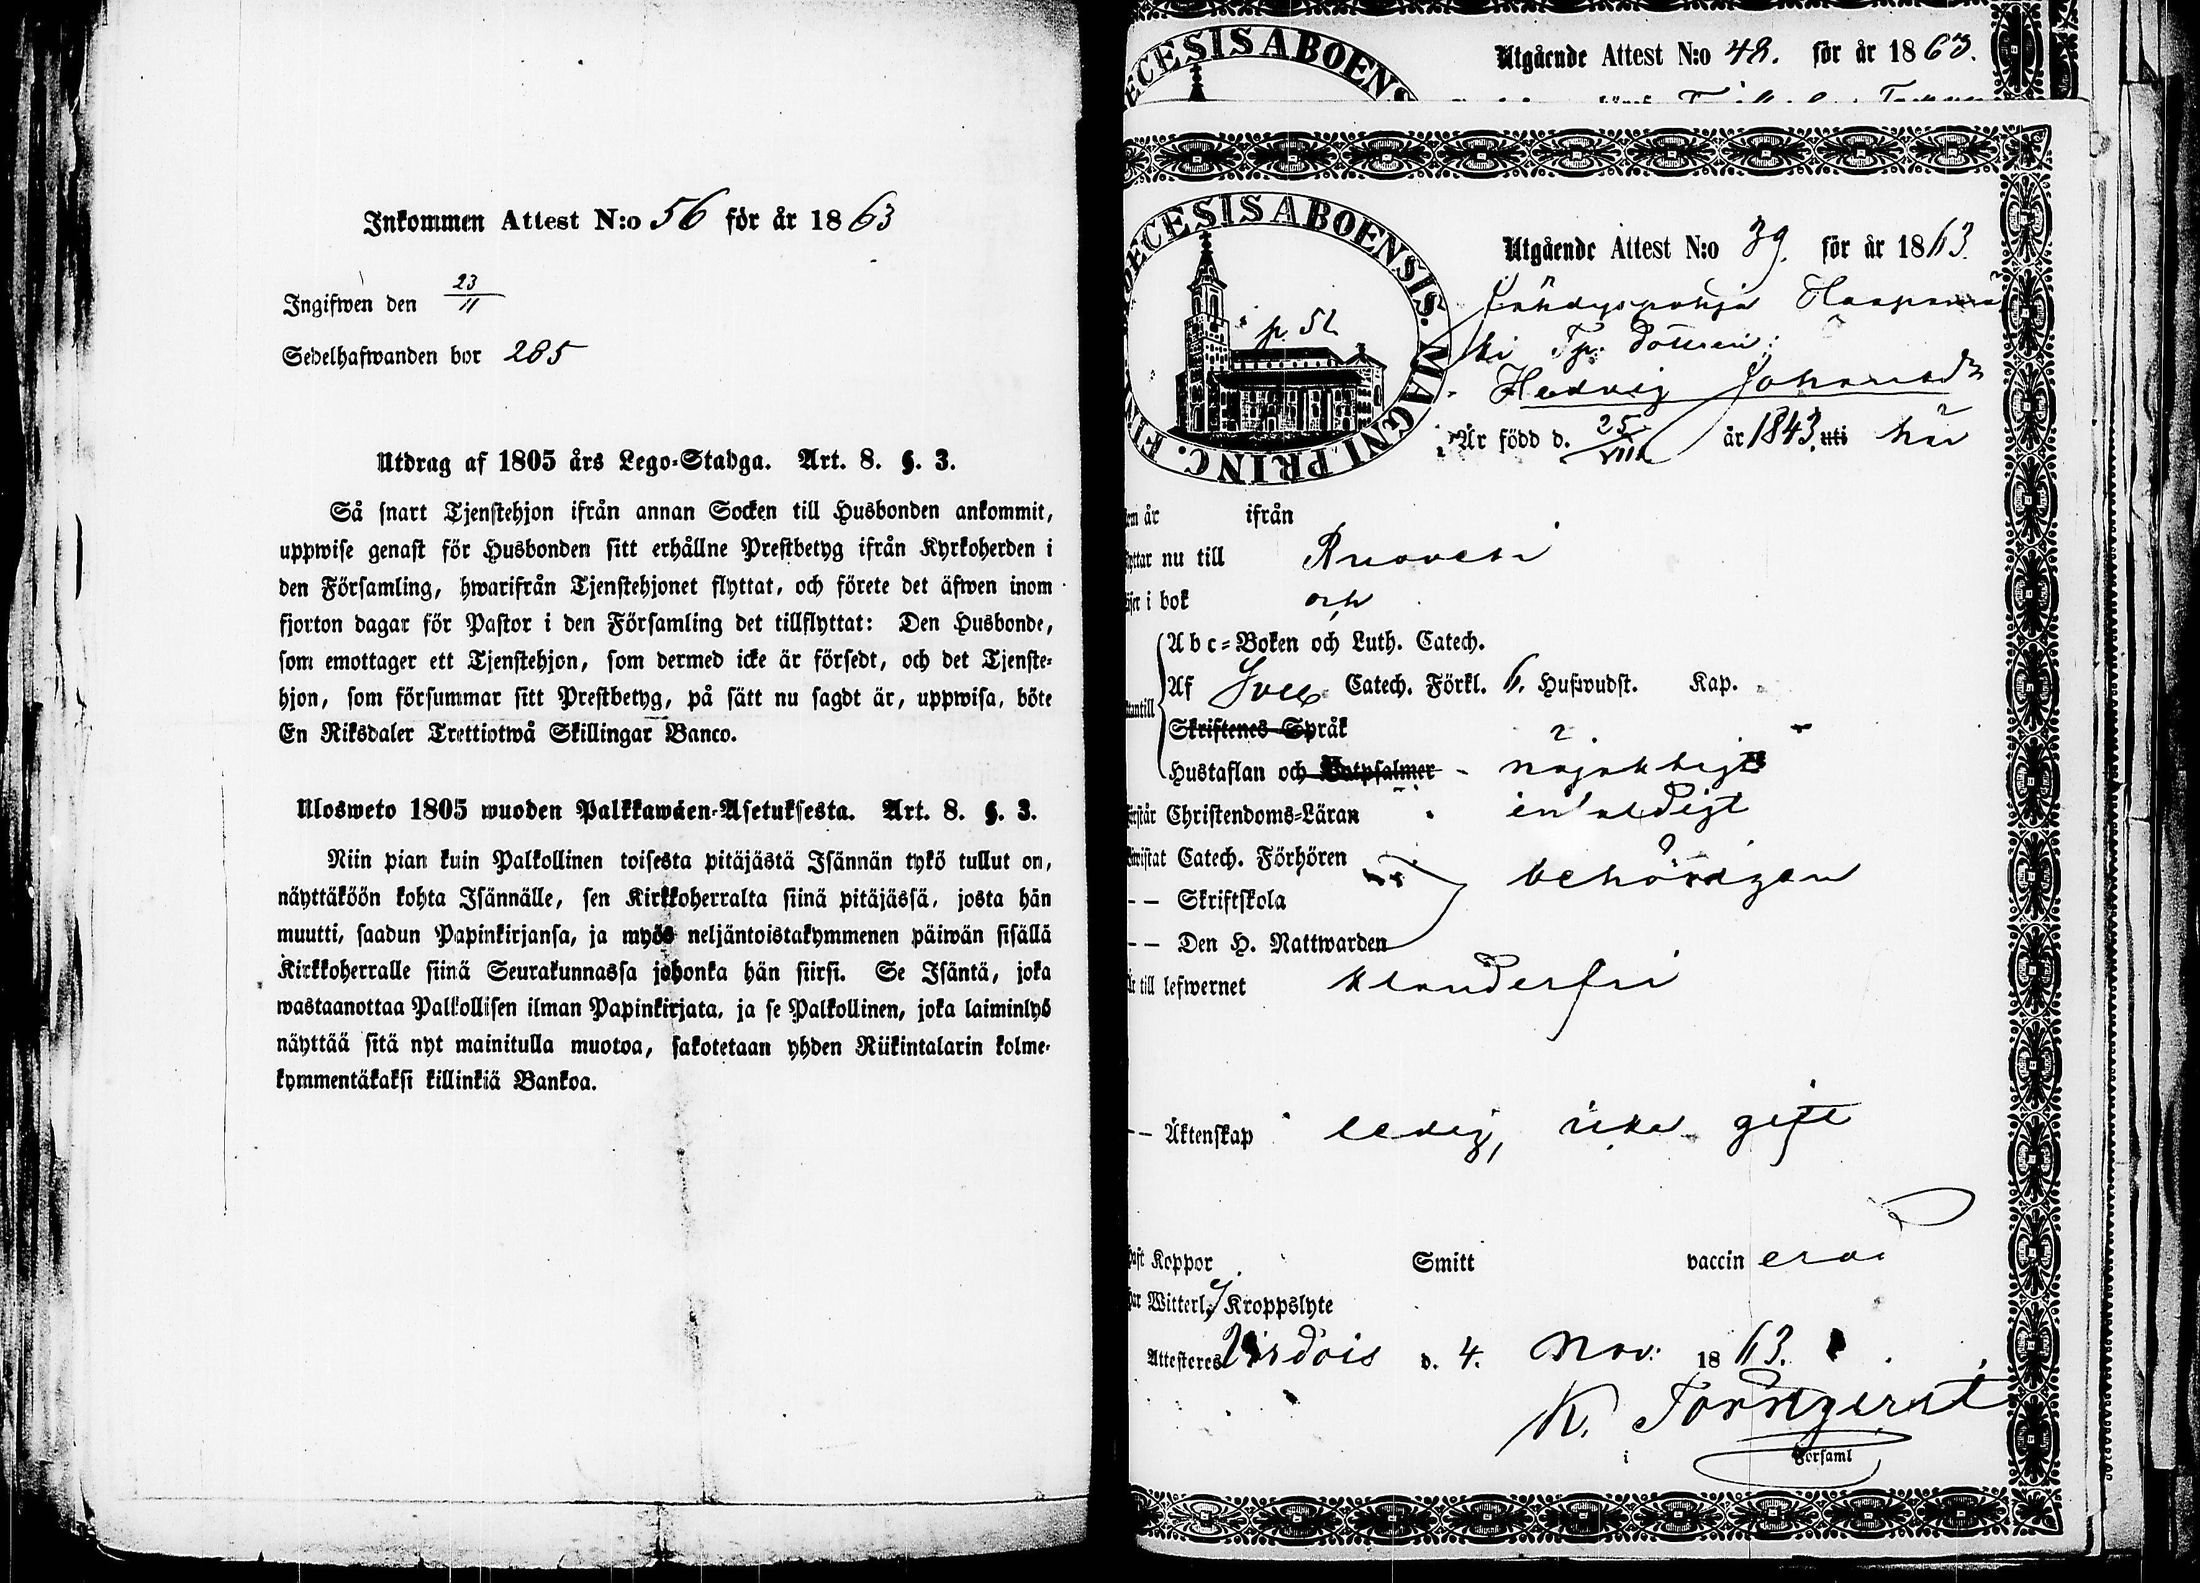 Inkommen Attest N:o 56 för år 1863
Ingifwen den 23/11
Sedelhafwanden bor 285
Utdrag af 1805 års Lego-Stadga. Art. 8. §. 3.
Så snart Tjenstehjon ifrån annan Socken till Husbonden ankommit,
uppwise genast för Husbonden sitt erhållne Prestbetyg ifrån Kyrkoherden i
den Församling, hwarifrån Tjenstehjonet flyttat, och förete det äfwen inom
fjorton dagar för Pastor i den Församling det tillflyttat: Den Husbonde,
som emottager ett Tjenstehjon, som dermed icke är försedt, och det Tjenste-
hjon, som försummar sitt Prestbetyg, på sätt nu sagdt är, uppwisa, böte
En Riksdaler Trettiotwå Skillingar Banco.
Ulosweto 1805 wuoden Palkkawäen-Asetuksesta. Art. 8. §. 3.
Niin pian kuin Palkollinen toisesta pitäjästä Isännän tykö tullut on,
näyttäköön kohta Isännälle, sen Kirkkoherralta siinä pitäjässä, josta hän
muutti, saadun Papinkirjansa, ja myös neljäntoistakymmenen päiwän sisällä
Kirkkoherralle siinä Seurakunnassa johonka hän siirsi. Se Isäntä, joka
wastaanottaa Palkollisen ilman Papinkirjata, ja se Palkollinen, joka laiminlyö
näyttää sitä nyt mainitulla muotoa, sakotetaan yhden Riikintalarin kolme-
kymmentäkaksi killinkiä Bankoa.
ECESIS ABOENS
Utgående Attest N:o 48. för år 1863.
ECESIS ABOENSIS. MAGNI. PRINC. FIN
p. 52
Utgående Attest N:o 39. för år 1863.
Jähdyspohja Haapamä
ki Tp. dottren:
Hedvig Johansdr
Är född d. 25/VIII år 1843. uti här
om år ifrån
yttar nu till Ruovesi
i bok och
Abc-Boken och Luth. Catech.
Af Sveb. Catech. Förkl. 6. Hufwudst. Kap.
antill
Skriftenes Språk
Hustaflan och Botpsalmer - nöjaktigt
rstår Christendoms-Läran enfaldigt
wistat Catech. Förhören behörigen
-- Skriftskola
-- Den H. Nattwarden
är till lefwernet klanderfri
-- Äktenskap ledig, icke gift
haft Koppor Smitt vaccinerad
har Witterl. Kroppslyte
Attesteres Virdois d. 4. Nov: 1863.
K. Törnqvist
i Församl